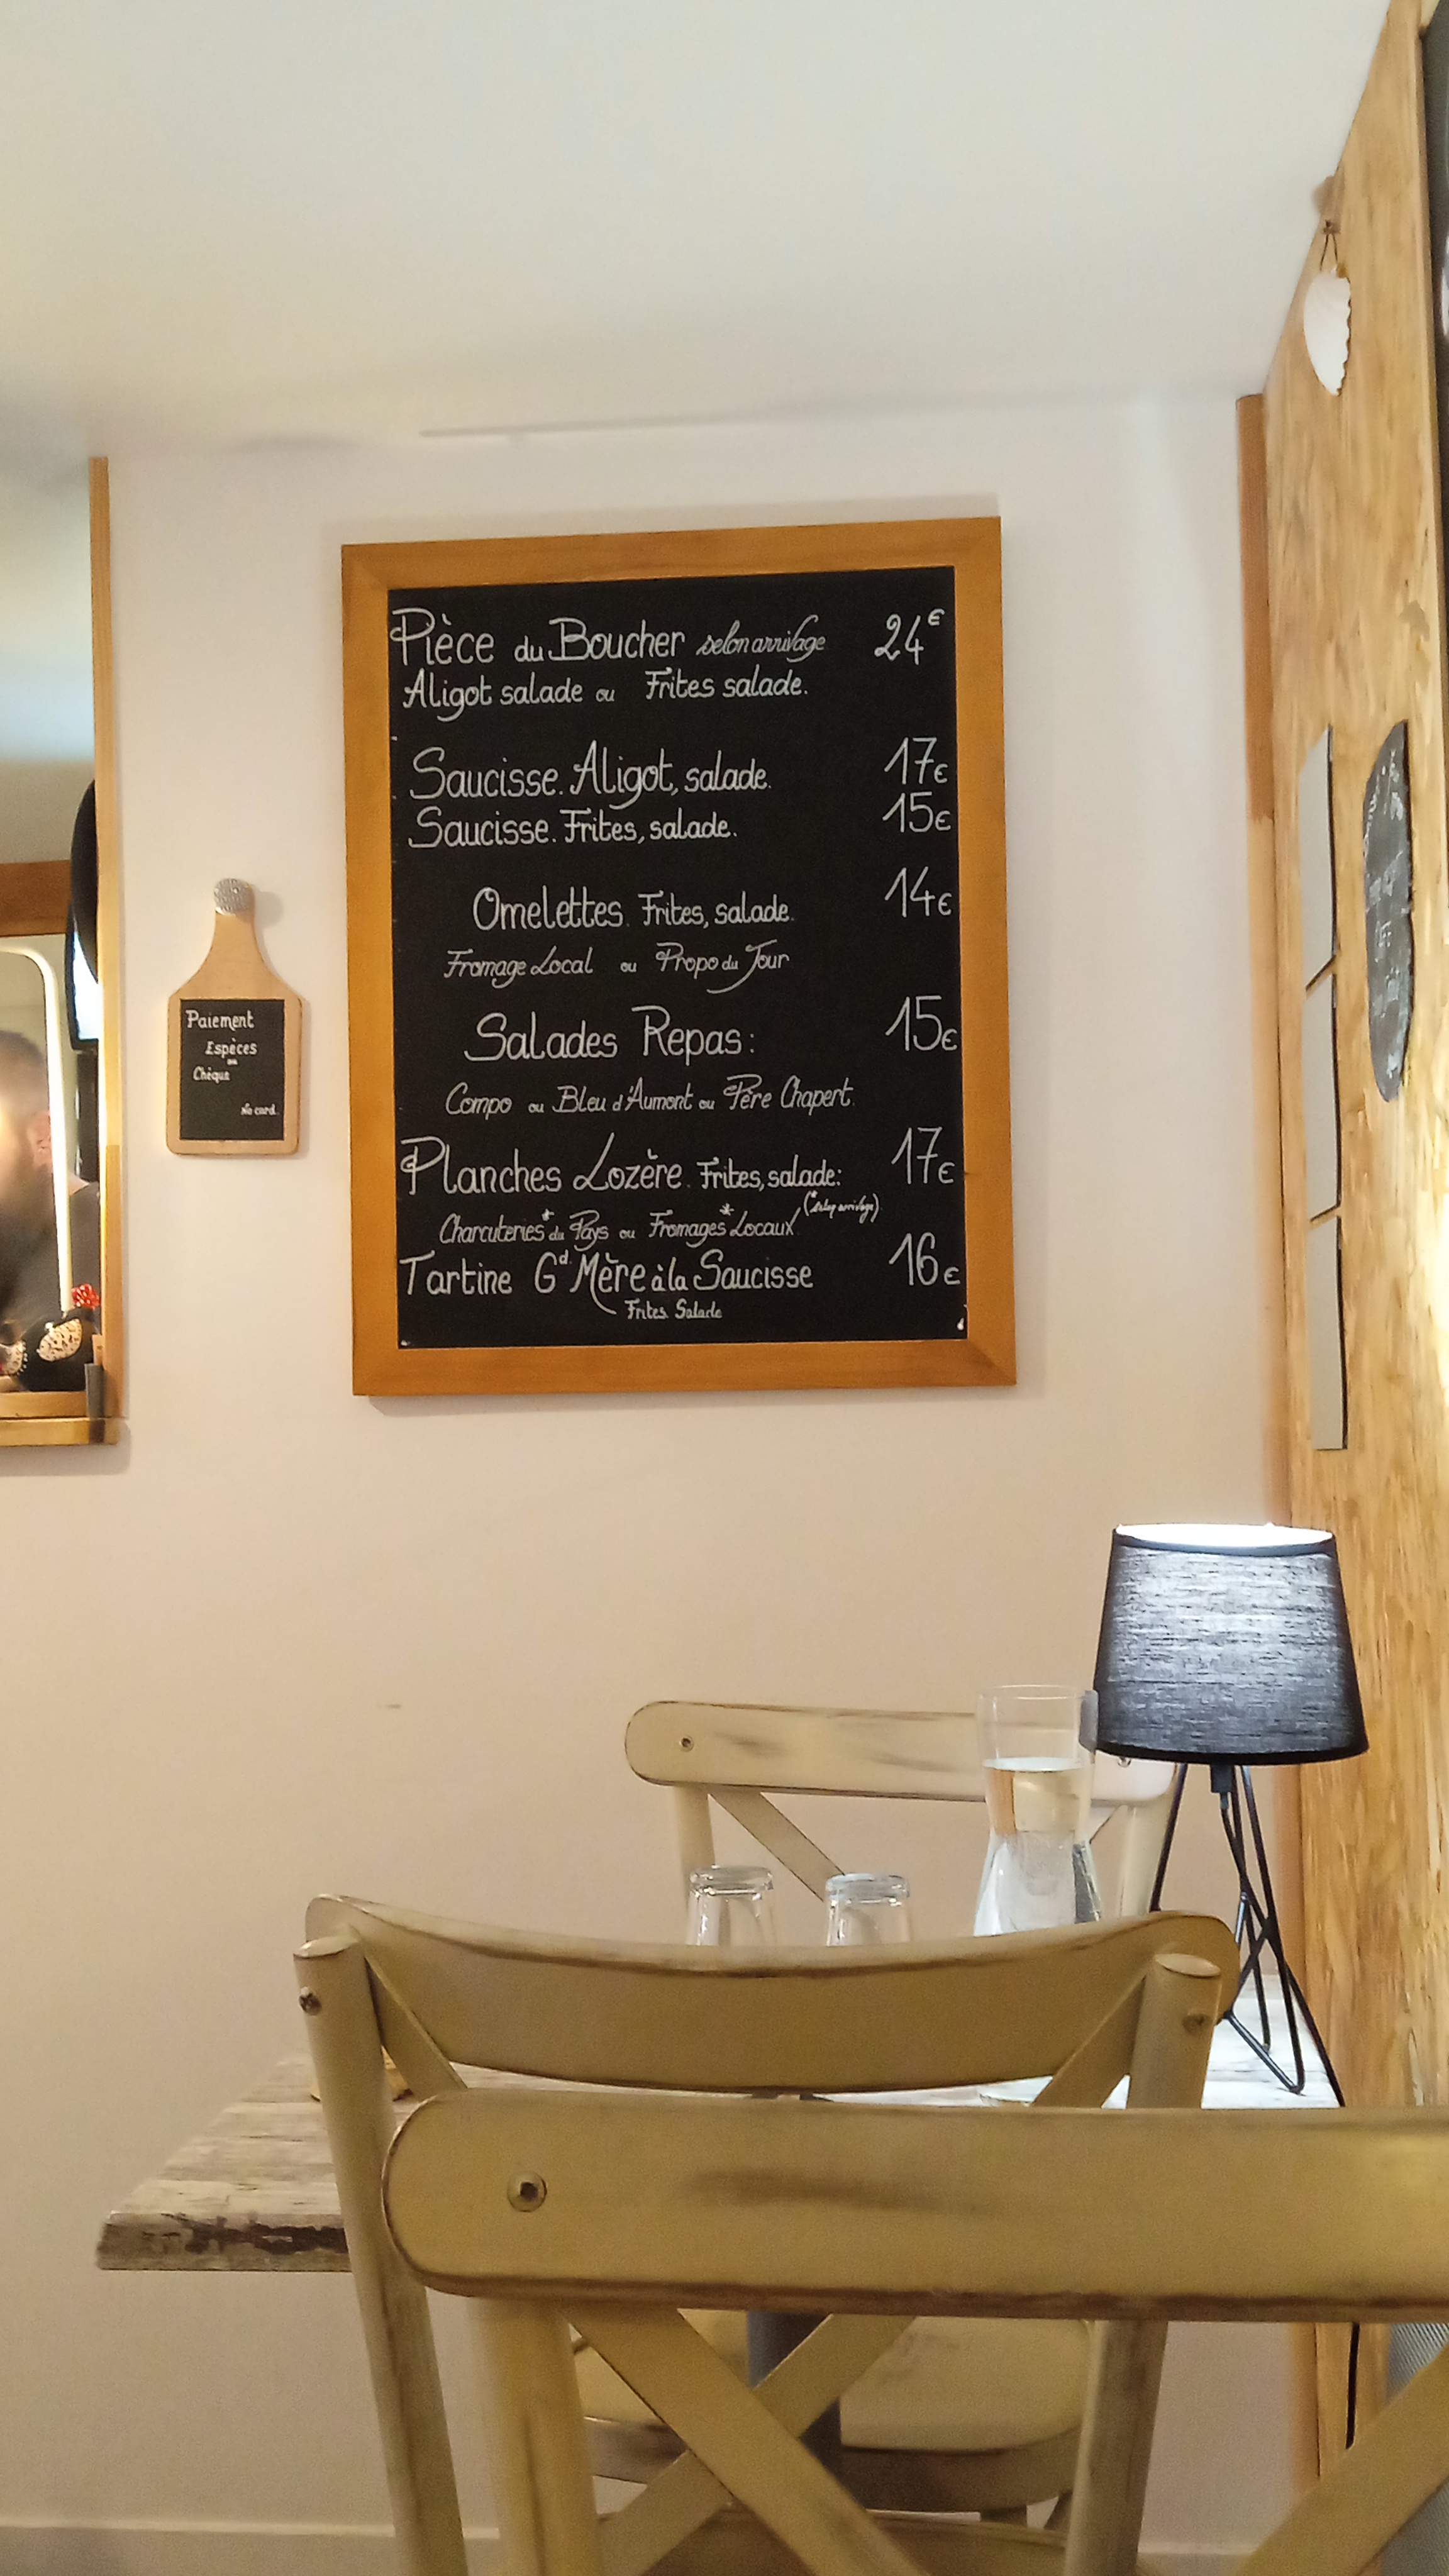 Pièce du Boucher selon arrivage 24€
Aligot salade ou Frites salade.
Saucisse. Aligot, salade. 17€
Saucisse. Frites, salade. 15€
Omelettes. Frites, salade. 14€
Fromage Local ou Propo du Jour
Salades Repas: 15€
Compo ou Bleu d'Aumont ou Père Chapert.
Planches Lozère. Frites, salade: 17€
(*selon arrivage)
Charcuteries* du Pays ou Fromages* Locaux
Tartine Gd Mère à la Saucisse 16€
Frites Salade
Paiement
Espèces
ou
Chèque
No card.